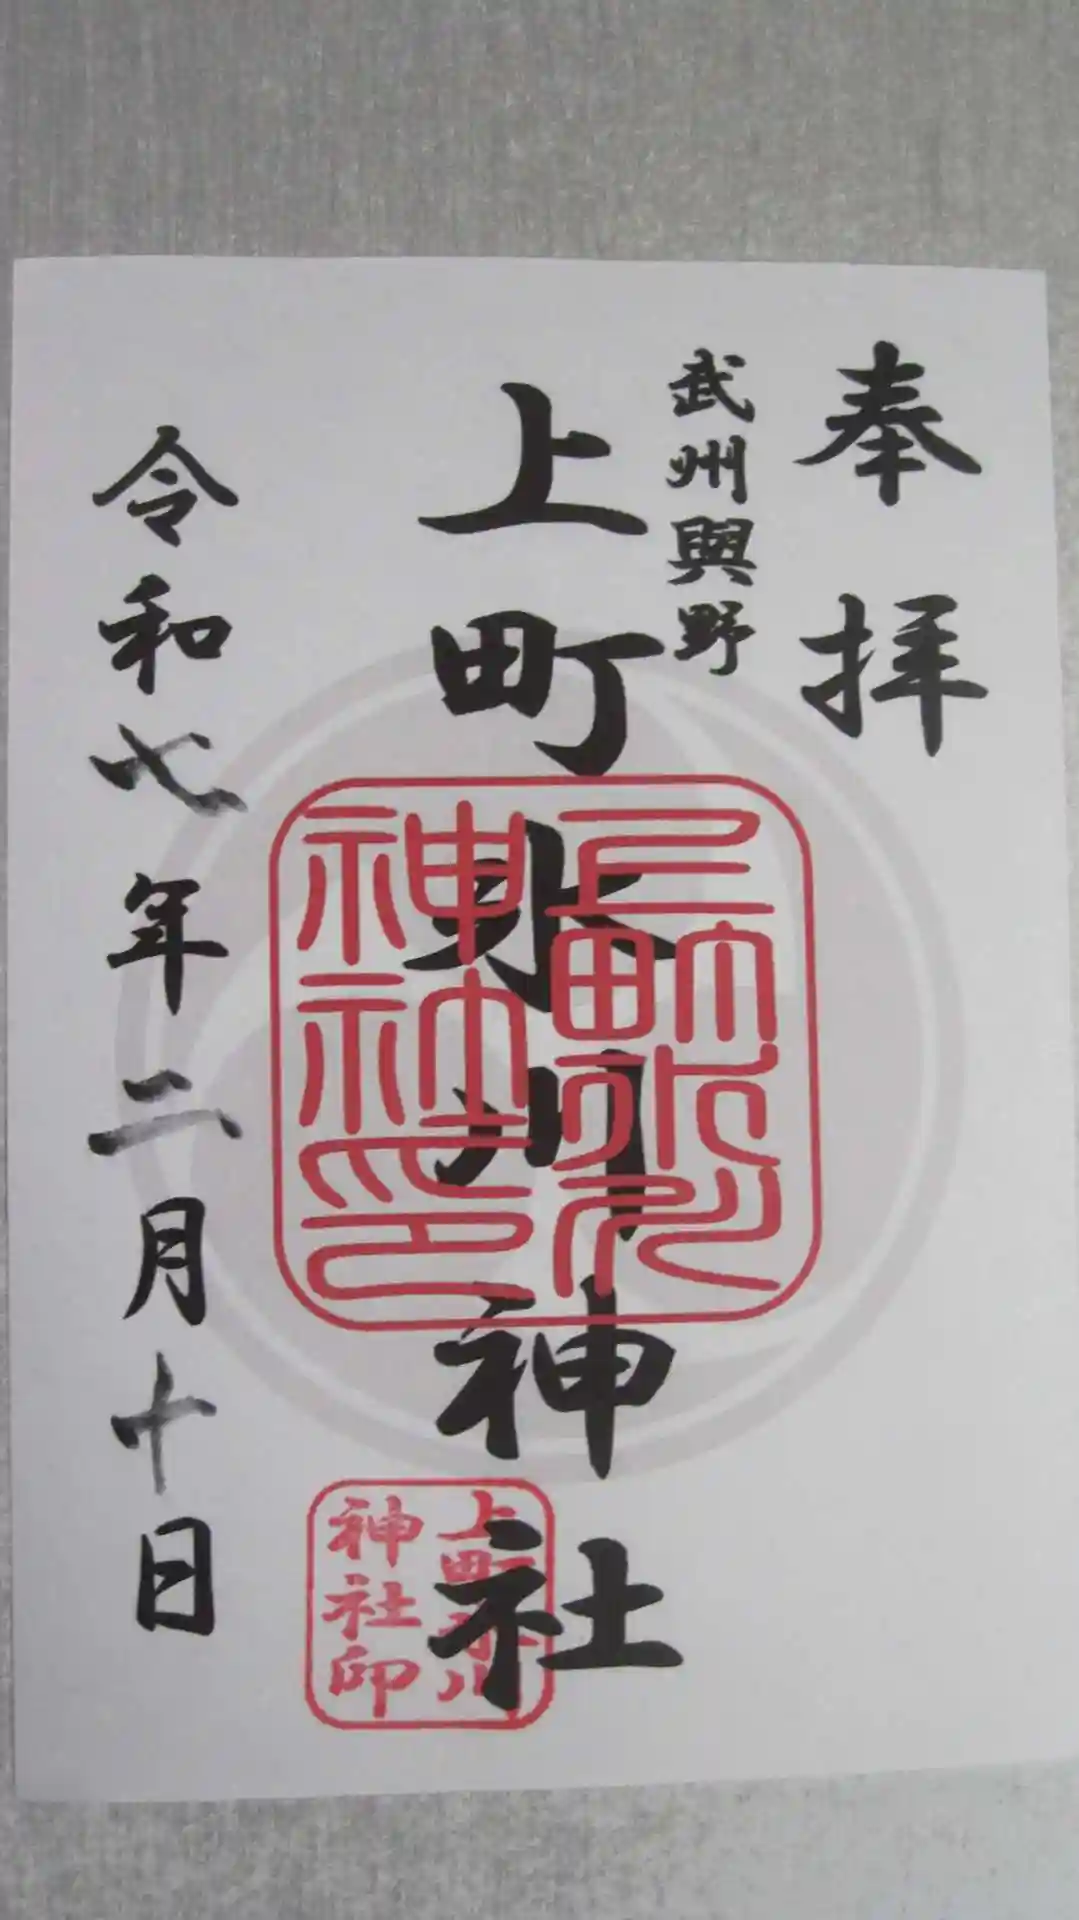 奉拝
武州與野
上町氷川神社
上町氷川
神社之印
上町氷川
神社印
令和七年二月十日